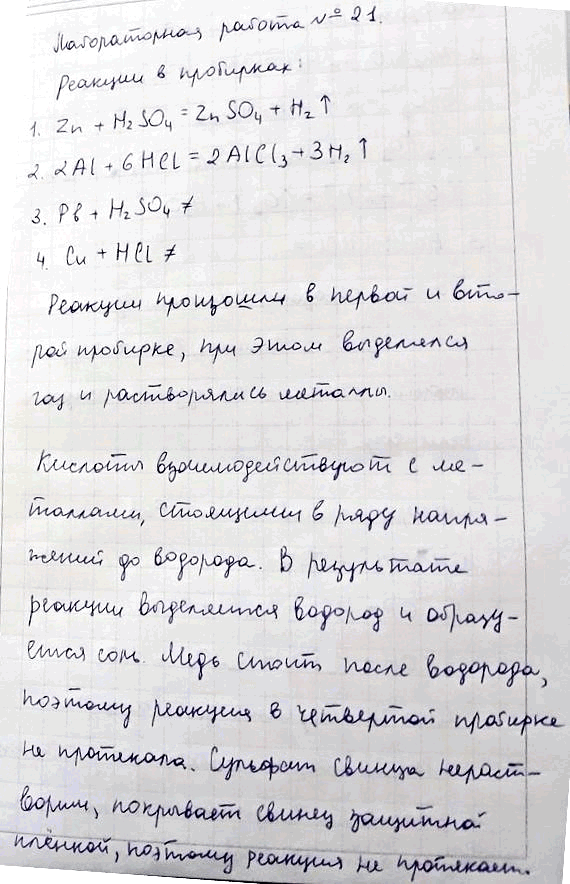 Лабораторная работа № 21.
Реакции в пробирках:
1. Zn + H₂SO₄ = ZnSO₄ + H₂↑
2. 2Al + 6HCl = 2AlCl₃ + 3H₂↑
3. Pb + H₂SO₄ ≠
4. Cu + HCl ≠
Реакции произошли в первой и вто-
рой пробирке, при этом выделялся
газ и растворялись металлы.
Кислоты взаимодействуют с ме-
таллами, стоящими в ряду напря-
жений до водорода. В результате
реакции выделяется водород и образу-
ется соль. Медь стоит после водорода,
поэтому реакция в четвертой пробирке
не протекала. Сульфат свинца нераст-
ворим, покрывает свинец защитной
плёнкой, поэтому реакция не протекает.